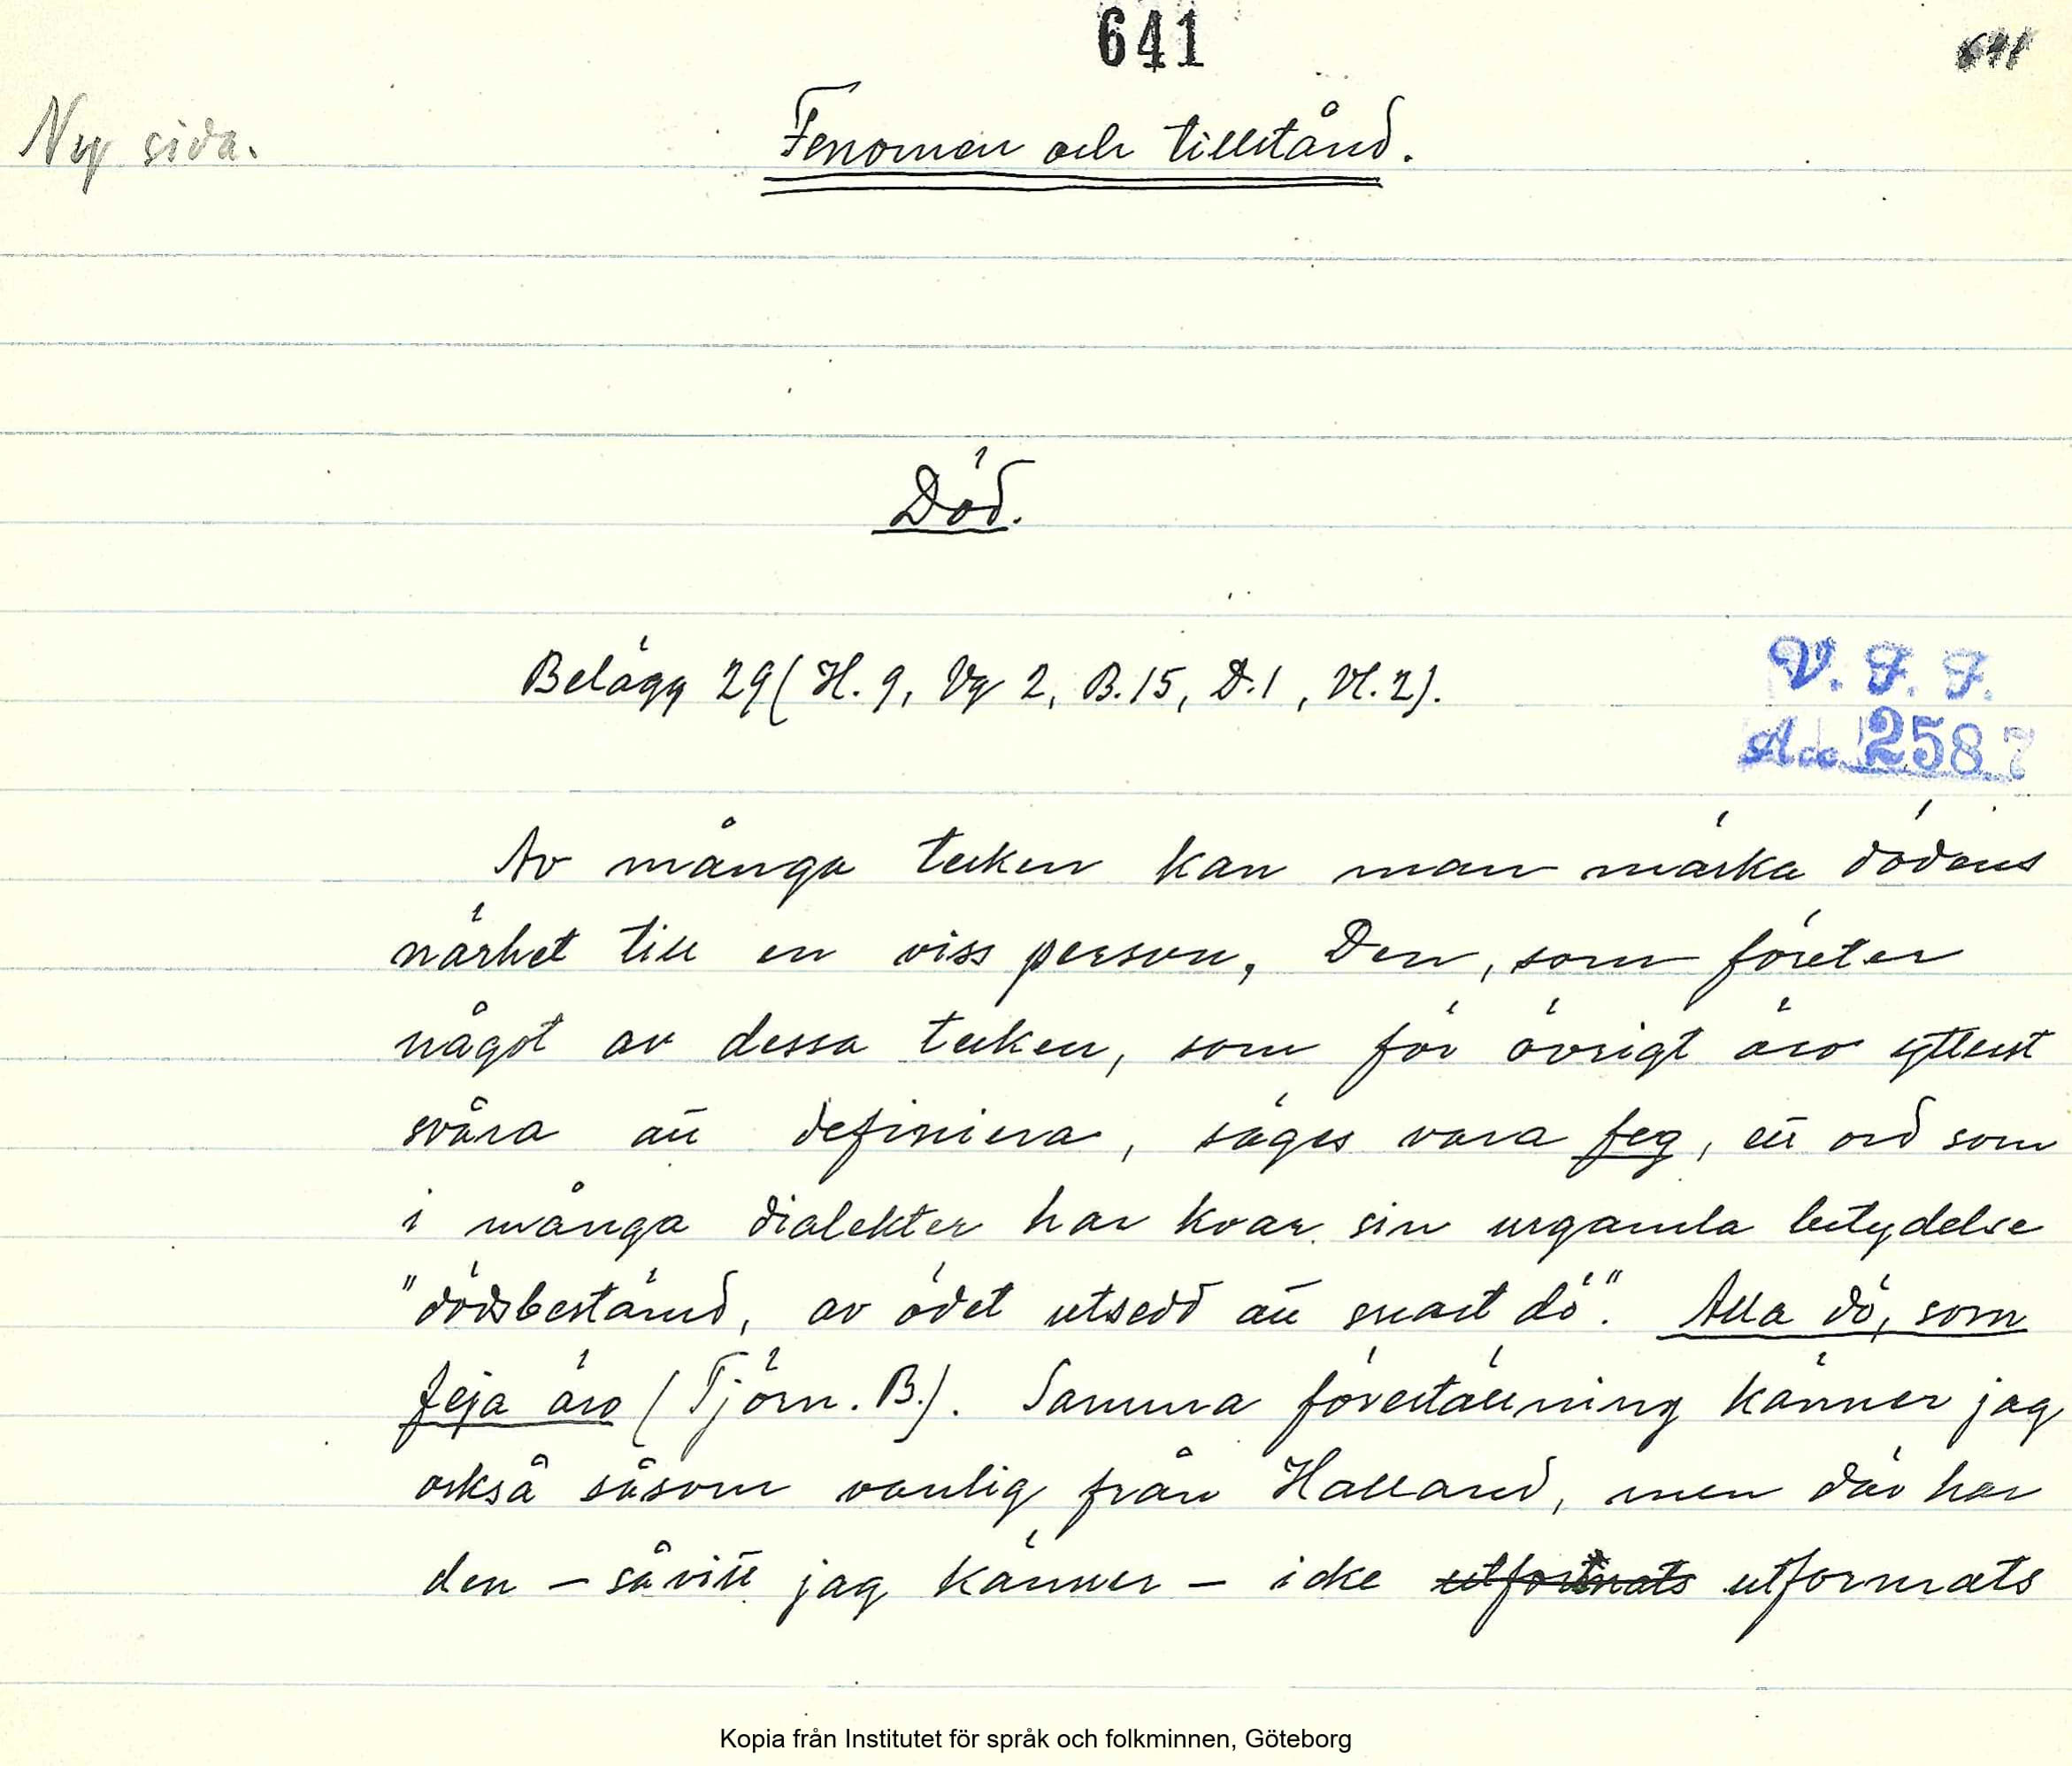 641
641
Ny sida.
Fenomen och tillstånd.
Död.
Belägg 29 (H. 9, Vg 2, B. 15, D. 1, Vl. 2).
V. F. F.
Acc. 2587
Av många tecken kan man märka dödens
närhet till en viss person. Den, som företer
något av dessa tecken, som för övrigt äro ytterst
svåra att definiera, säges vara feg, ett ord som
i många dialekter har kvar sin urgamla betydelse
"dödsbestämd, av ödet utsedd att snart dö". Alla dö, som
feja äro (Tjörn. B.). Samma föreställning känner jag
också såsom vanlig från Halland, men där har
den – såvitt jag känner – icke utformats utformats
Kopia från Institutet för språk och folkminnen, Göteborg